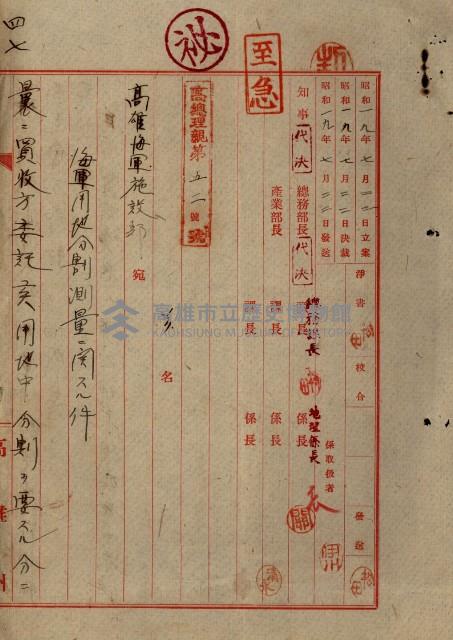 四七
祕
至急
昭和一九年七月二二日立案
昭和一九年七月二二日決裁
昭和一九年七月二二日發送
淨書
校合
發送
知事 代決
總務部長 代決
產業部長
總務係長
地理係長
課長
課長
課長
係長
係長
係長
係取扱者
高總理親第五二號
高雄海軍施設部 宛
名
海軍用地分割測量ニ関スル件
曩ニ買收方委託ノ用地中分割ヲ要スル分ニ
高雄州
高雄市立歷史博物館
KAOHSIUNG MUSEUM OF HISTORY